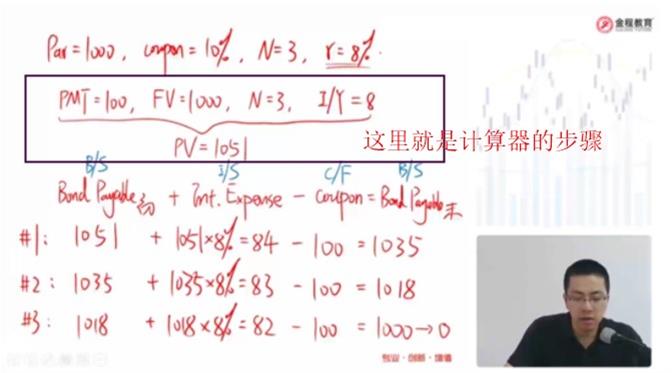 金程教育
Par=1000, coupon=10%, N=3, r=8%.
PMT=100, FV=1000, N=3, I/Y=8
PV=1051
这里就是计算器的步骤
B/S I/S C/F B/S
Bond Payable初 + Int. Expense - coupon = Bond Payable末
#1: 1051 + 1051×8%=84 - 100 = 1035
#2: 1035 + 1035×8%=83 - 100 = 1018
#3: 1018 + 1018×8%=82 - 100 = 1000→0